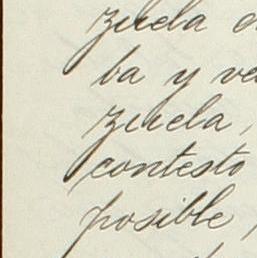 zuela
ba y ve
zuela,
contesto
posible,